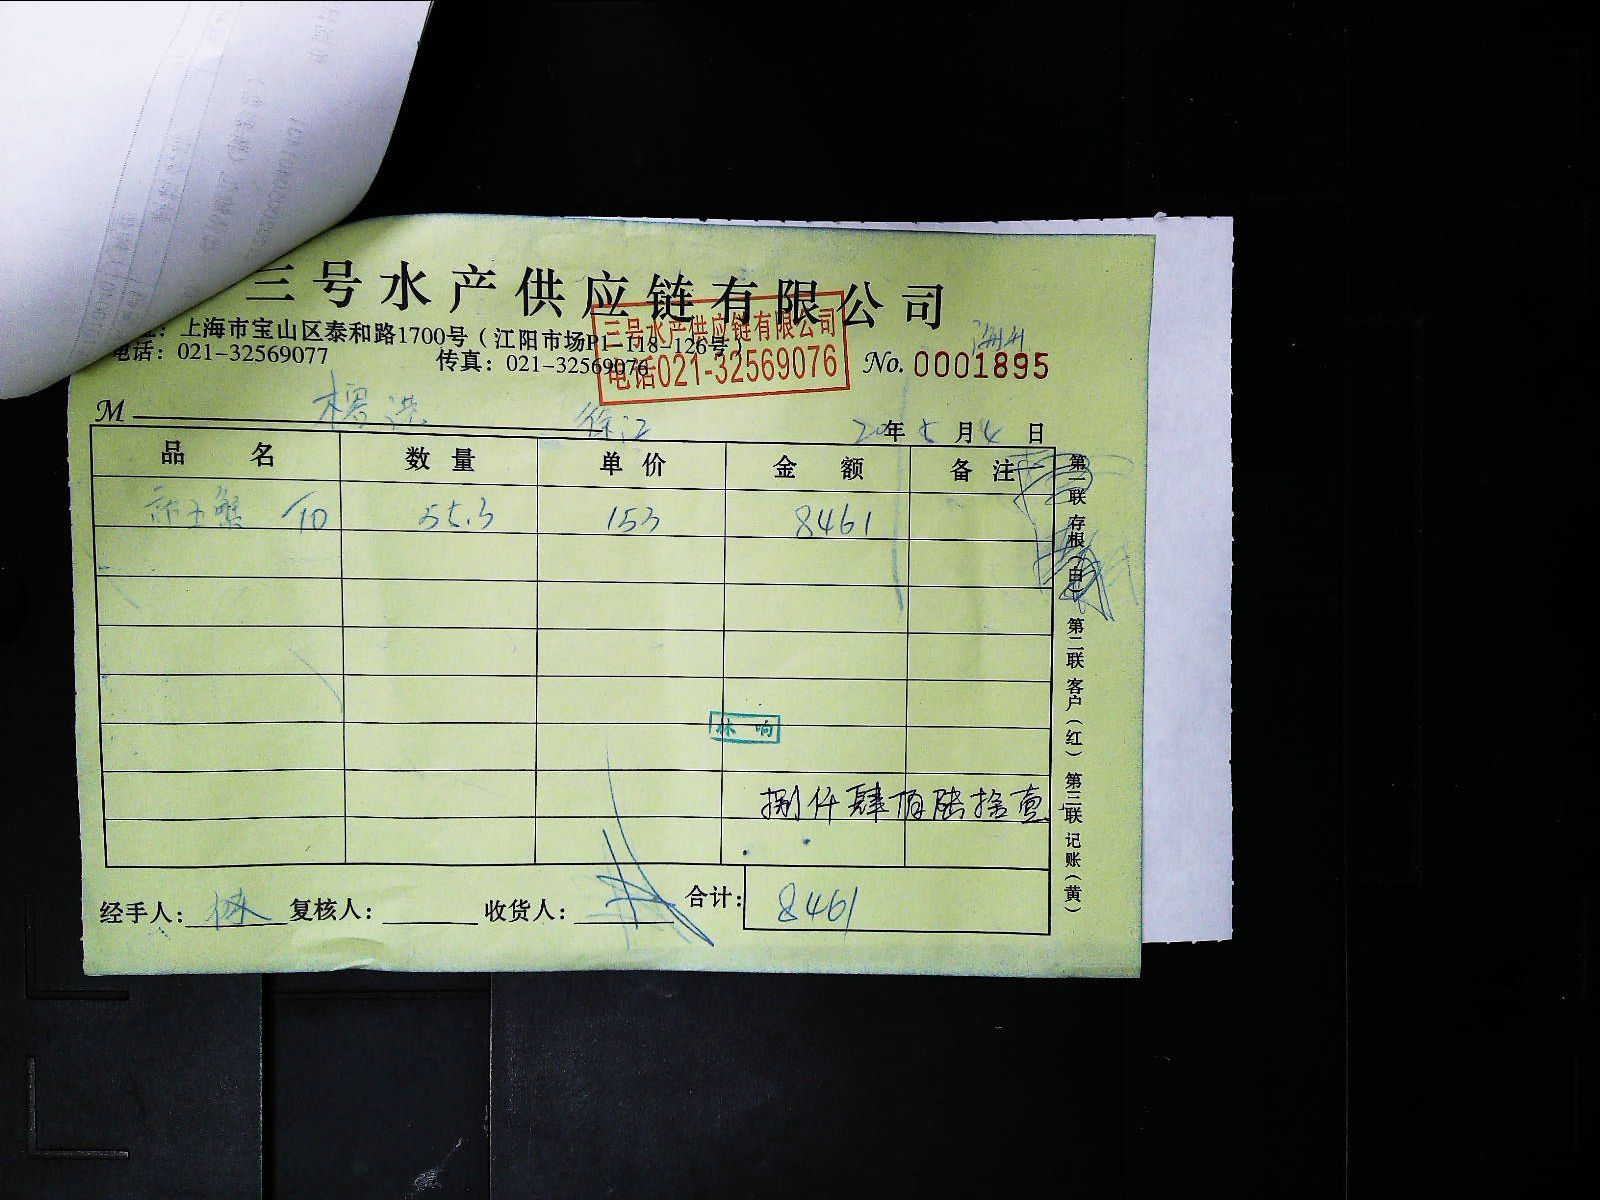 三号水产供应链有限公司
：上海市宝山区泰和路1700号（江阳市场P1-118-126号）
电话：021-32569077 传真：021-32569076
三号水产供应链有限公司
电话021-32569076
No. 0001895
M 徐江
20年5月4日
品名 数量 单价 金额 备注
/10 55.3 153 8461
林响
捌仟肆佰陆拾壹
经手人： 复核人： 收货人： 合计： 8461
第一联 存根（白） 第二联 客户（红） 第三联 记账（黄）